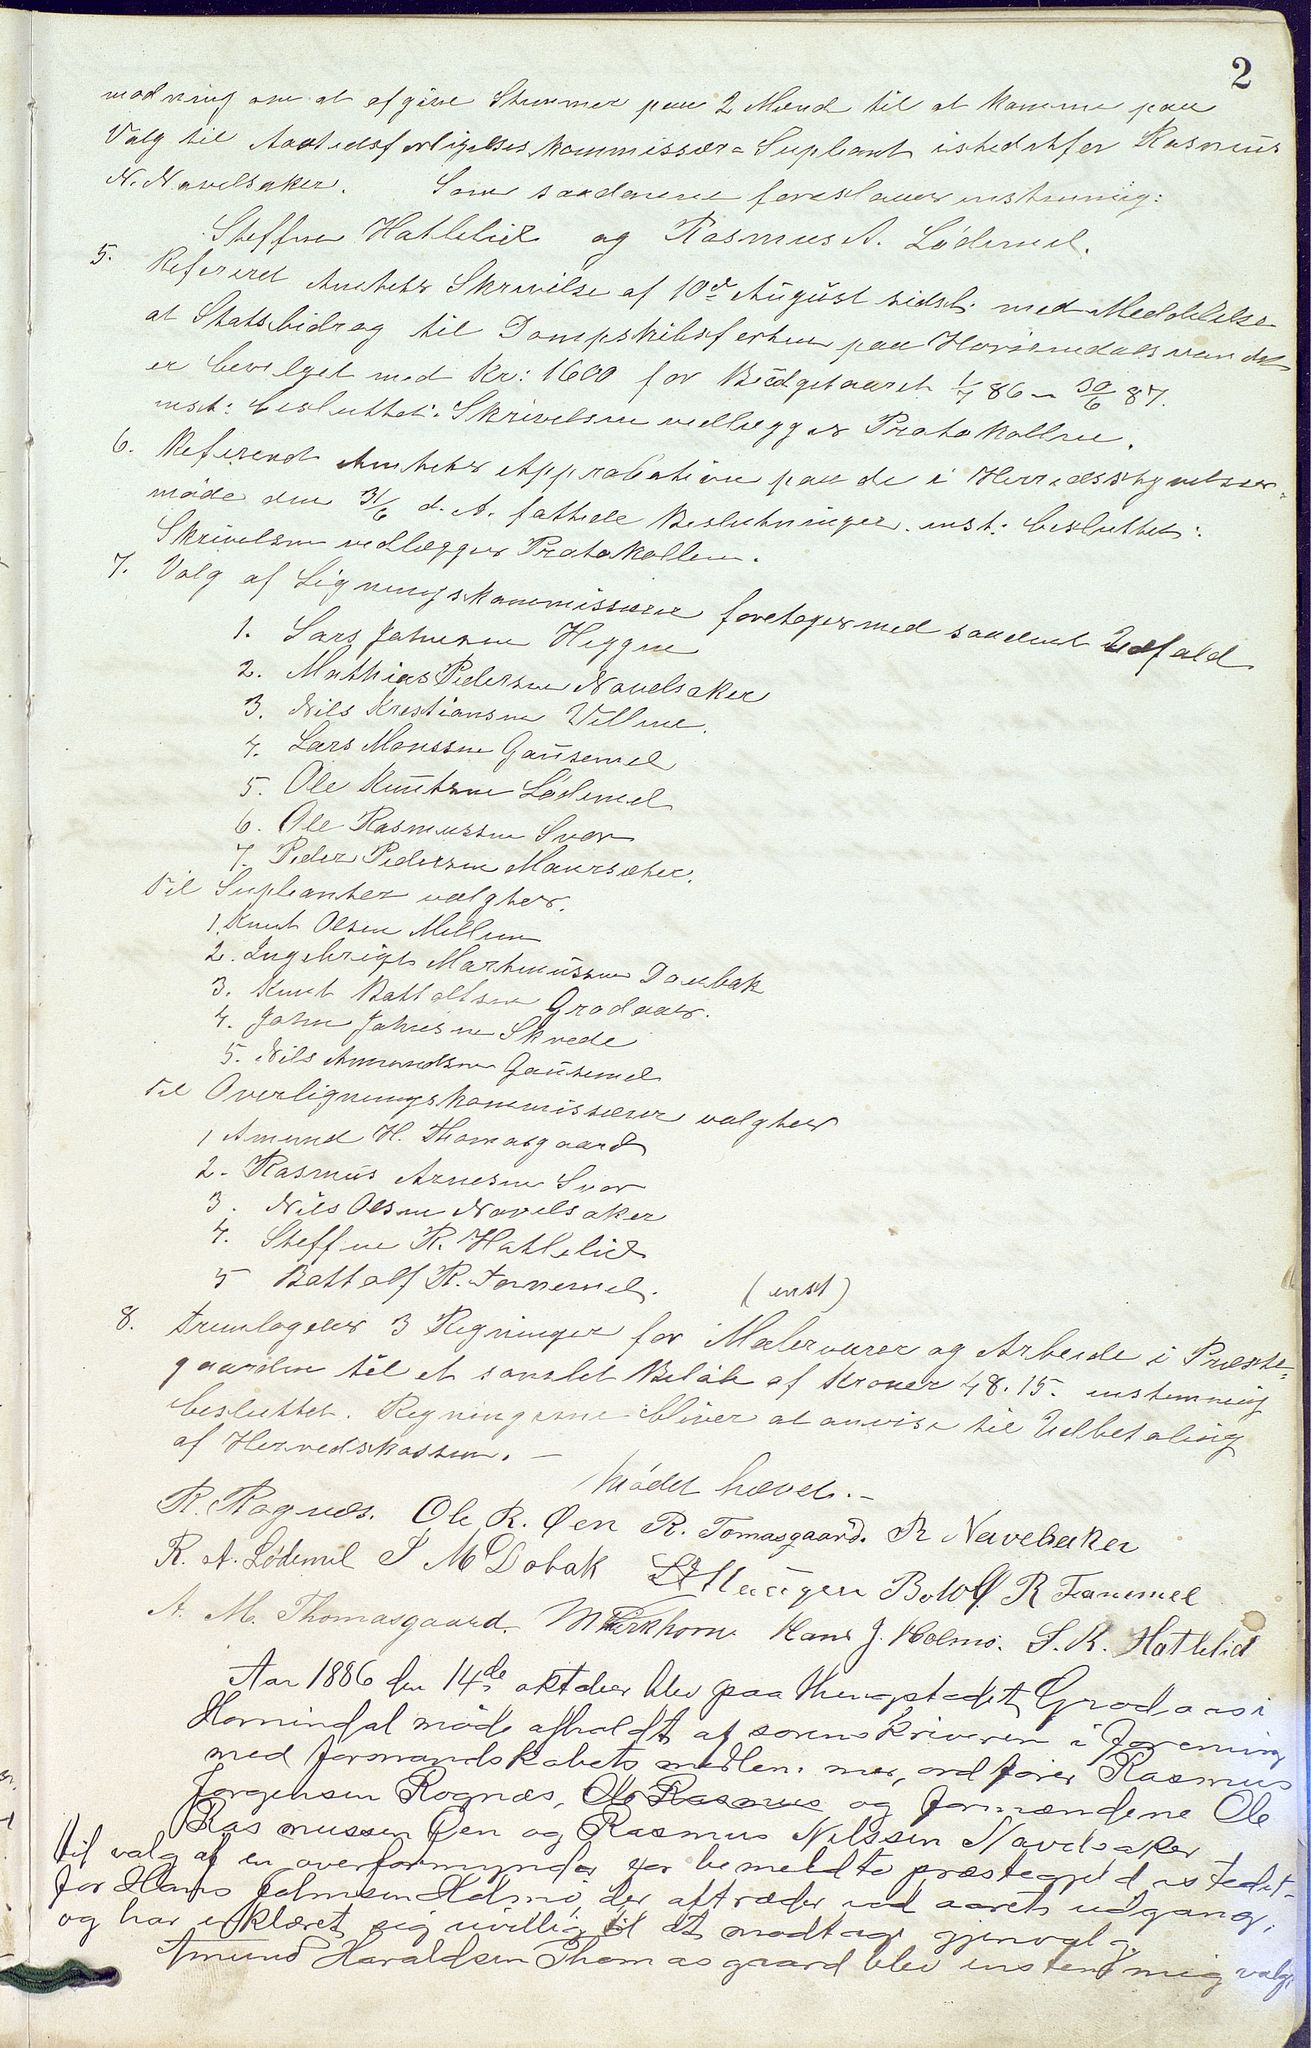 2
modning om at afgive Stemmer paa 2 Mænd til at komme paa
Valg til Aastedsforligelses kommissær = Supleant istedetfor Rasmus
N. Navelsaker. Som saadanne foreslaaes enstemig:
Steffen Hatlelid og Rasmus A. Lødemel.
5. Refereret Amtets Skrivelse af 10de August sidstl. med Meddelelse
at Statsbidrag til Dampskibsfarten paa Horrendalsvandet
er bevilget med Kr: 1600 for Budgetaaret 1/7 86 - 30/6 87.
enst: besluttet: Skrivelsen vedlægges Protokollen.
6. Refererat Amtets Approbation paa de i Herredsstyrelses=
møde den 31/6 d. A. fattede Beslutninger. enst: besluttet:
Skrivelsen vedlægges Protokollen.
7. Valg af Ligningskommissærer foretages med saadant Udfald
1. Lars Johnsen Heggen
2. Mathias Pedersen Navelsaker
3. Nils Kristiansen Vellene.
4. Lars Monssen Gausemel
5. Ole Knutsen Lødemel
6. Ole Rasmussen Svor
7. Peder Pedersen Maursæter.
Til Supleanter valgtes.
1. Knut Olsen Mellem
2. Ingebrigt Martinussen Doubak
3. Knut Bottolfsen Grodaas.
4. John Johnsen Skrede
5. Nils Amundsen Gausemel
Til Overligningskommissærer valgtes
1 Amund H. Thomasgaard
2. Rasmus Arnesen Svor
3. Nils Olsen Navelsaker
4. Steffen R. Hatlelid
5 Bottolf R. Tannemel. (enst)
8. Fremlagdes 3 Regninger for Malervarer og Arbeide i Præste=
gaarden til et samlet Beløb af Kroner 48.15. enstemmig
besluttet. Regningerne bliver at anvise til Udbetaling
af Herredskassen. —
Mødet hævet. —
R. Rognæs. Ole R. Øen R. Tomasgaard. R Navelsaker
R. A. Lødemel I M Dobak Haugen Botolf R Tannemel
A. M. Thomasgaard. M Kirkhorn Hans J. Holmø. S. R. Hatlelid
Aar 1886 den 14de oktober blev paa thingstedet Grodaas i
Hornindal møde afholdt af sorenskriveren i forening
med formandskabets medlemmer, ordfører Rasmus
Jørgensen Rognæs, Ole Rasmus og formændene Ole
Rasmussen Øen og Rasmus Nilssen Navelsaker
til valg af en overformynder for bemeldte præstegjeld istedet-
for Hans Johnsen Holmø, der aftræder ved aarets udgang,
og har erklæret sig uvillig til at modtage gjenvalg.
Amund Haraldsen Thomasgaard blev enstemmig valgt